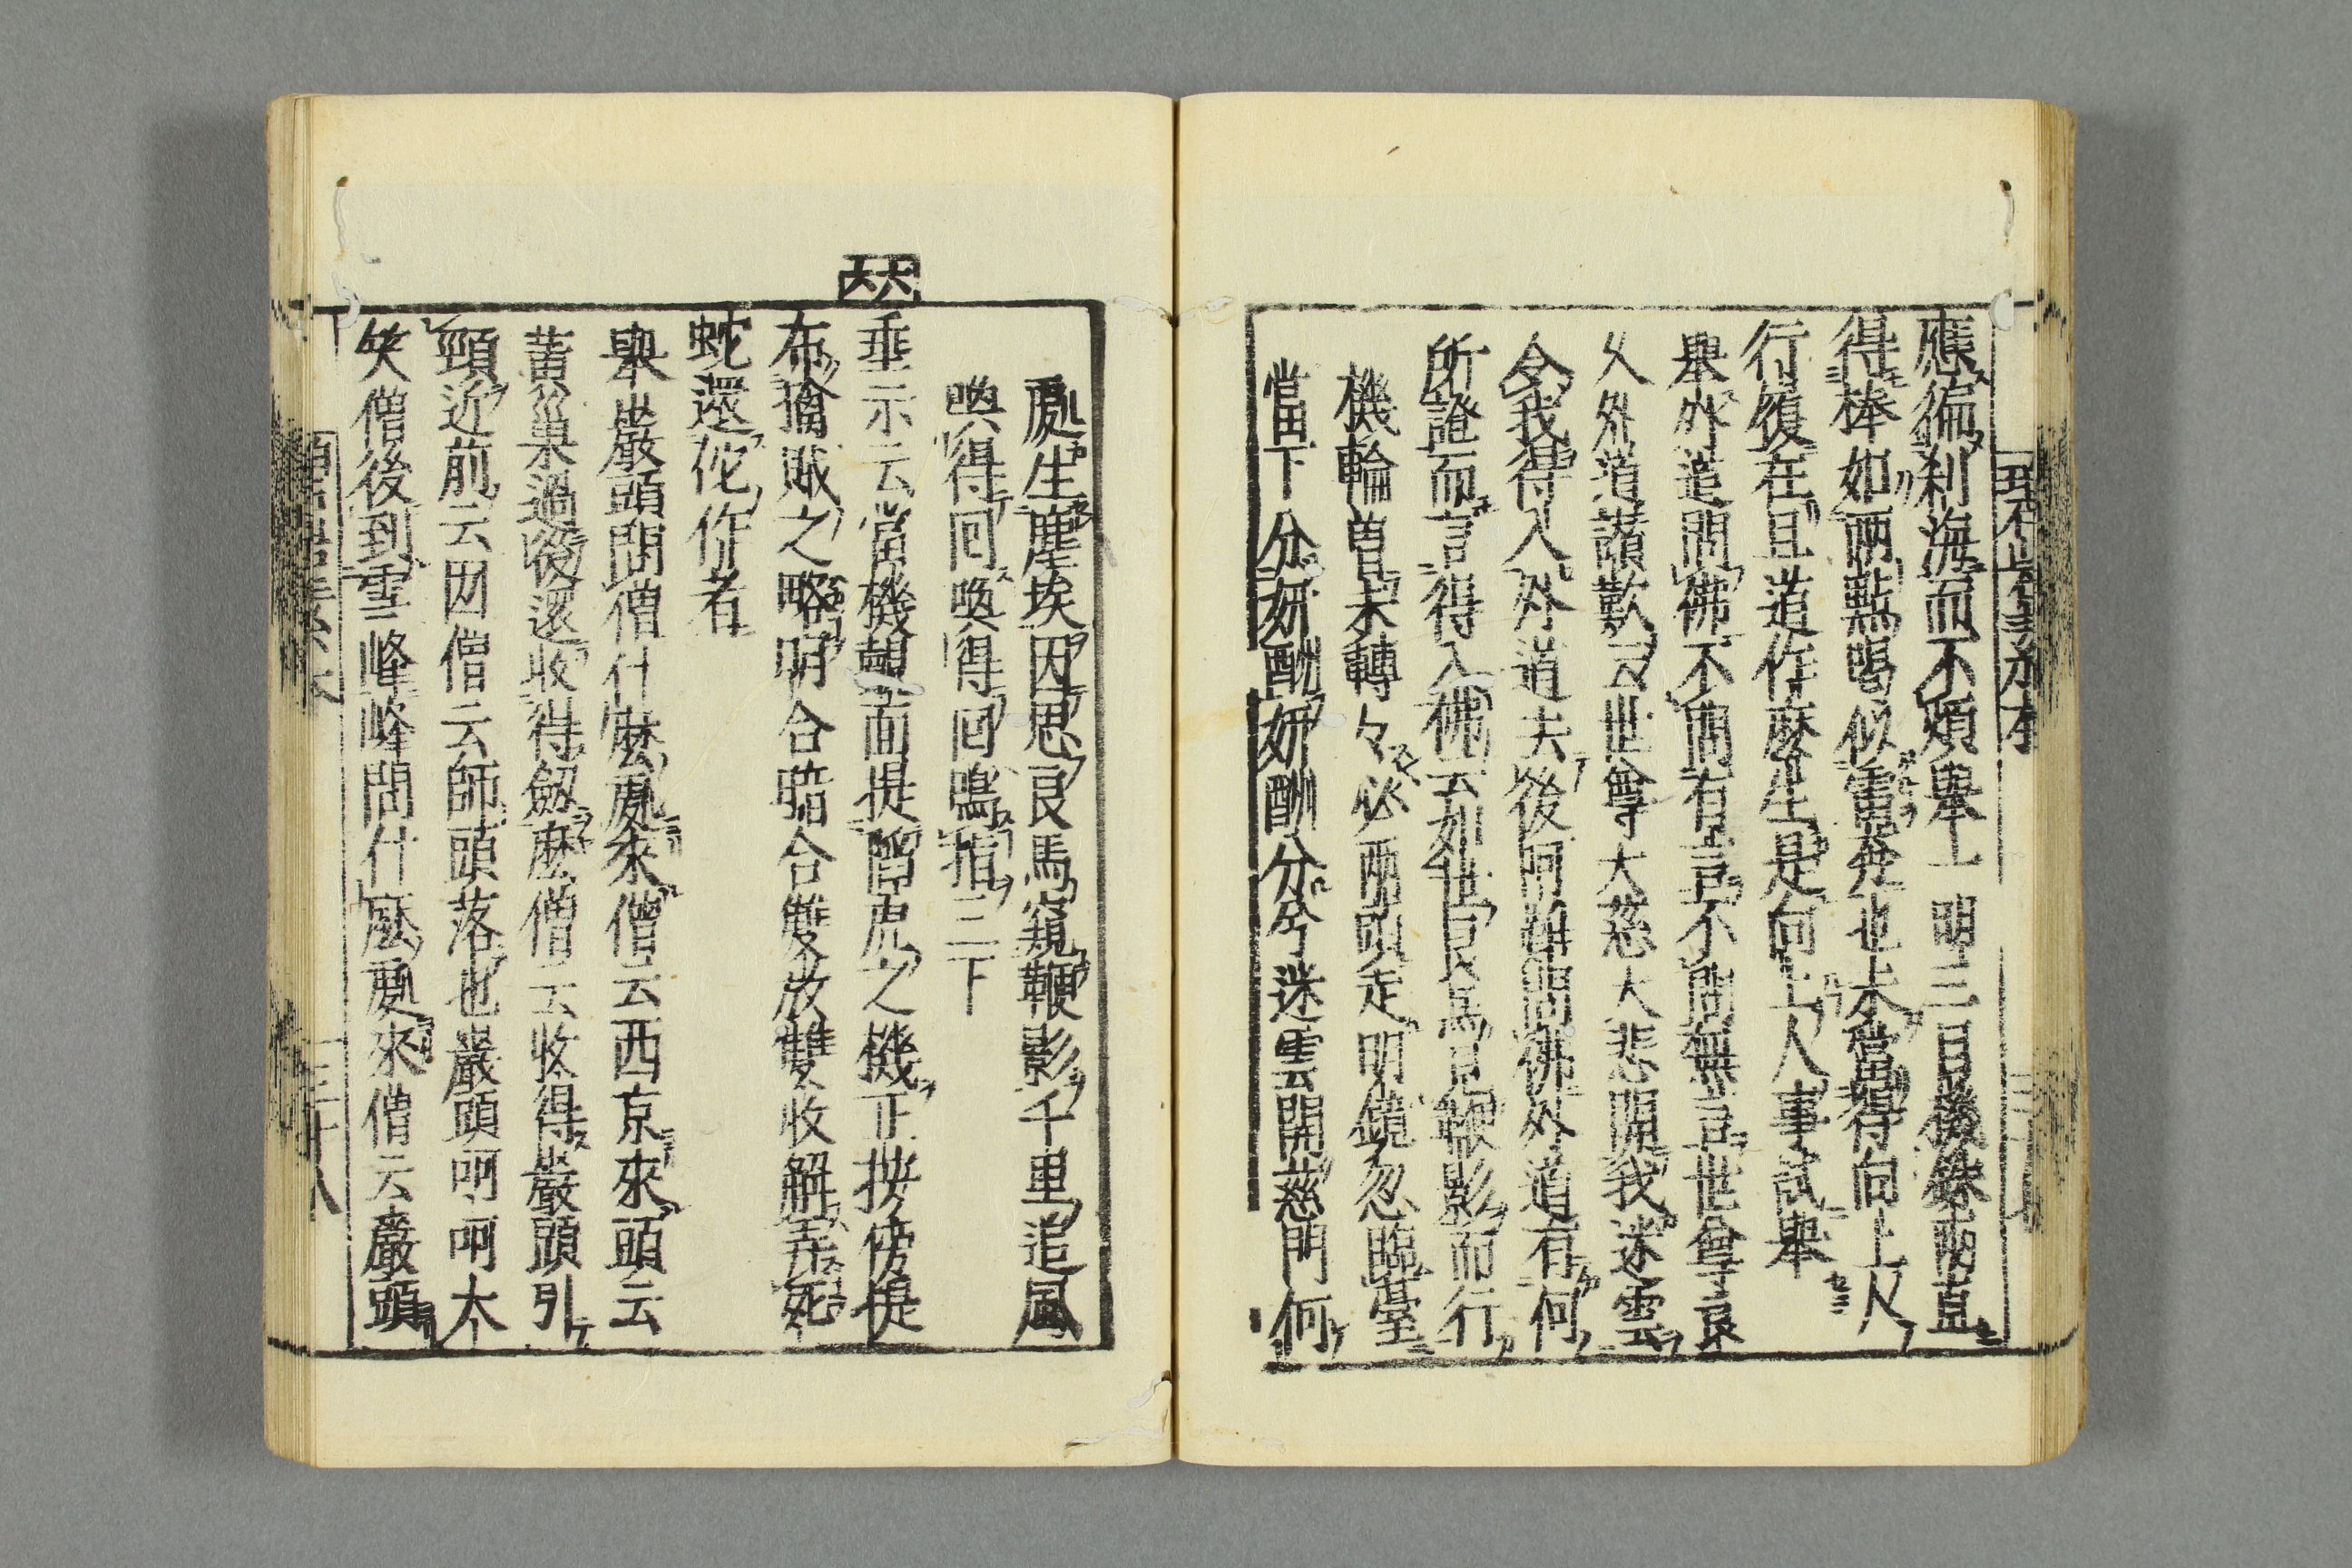 應徧刹海而不煩擧一明三目機銖兩直
得棒如雨點喝似雷奔也未當得向上人
行履在且道作麼生是向上人事試擧
擧外道問佛不問有言不問無言世尊良
久外道讃歎云世尊大慈大悲開我迷雲
令我得入外道去後阿難問佛外道有何
所證而言得入佛云如世良馬見鞭影而行
機輪曽未轉々必兩頭走明鏡忽臨臺
當下分妍醜妍醜分兮迷雲開慈門何
處生塵埃因思良馬窺鞭影千里追風
喚得回喚得回鳴指三下
六六
垂示云當機覿面提陷虎之機正按傍提
布擒賊之略明合暗合雙放雙收解弄死
蛇還佗作者
擧巖頭問僧什麼處來僧云西京來頭云
黄巢過後還收得劒麼僧云收得巖頭引
頸近前云㘞僧云師頭落也巖頭呵呵大
笑僧後到雪峰峰問什麼處來僧云巖頭